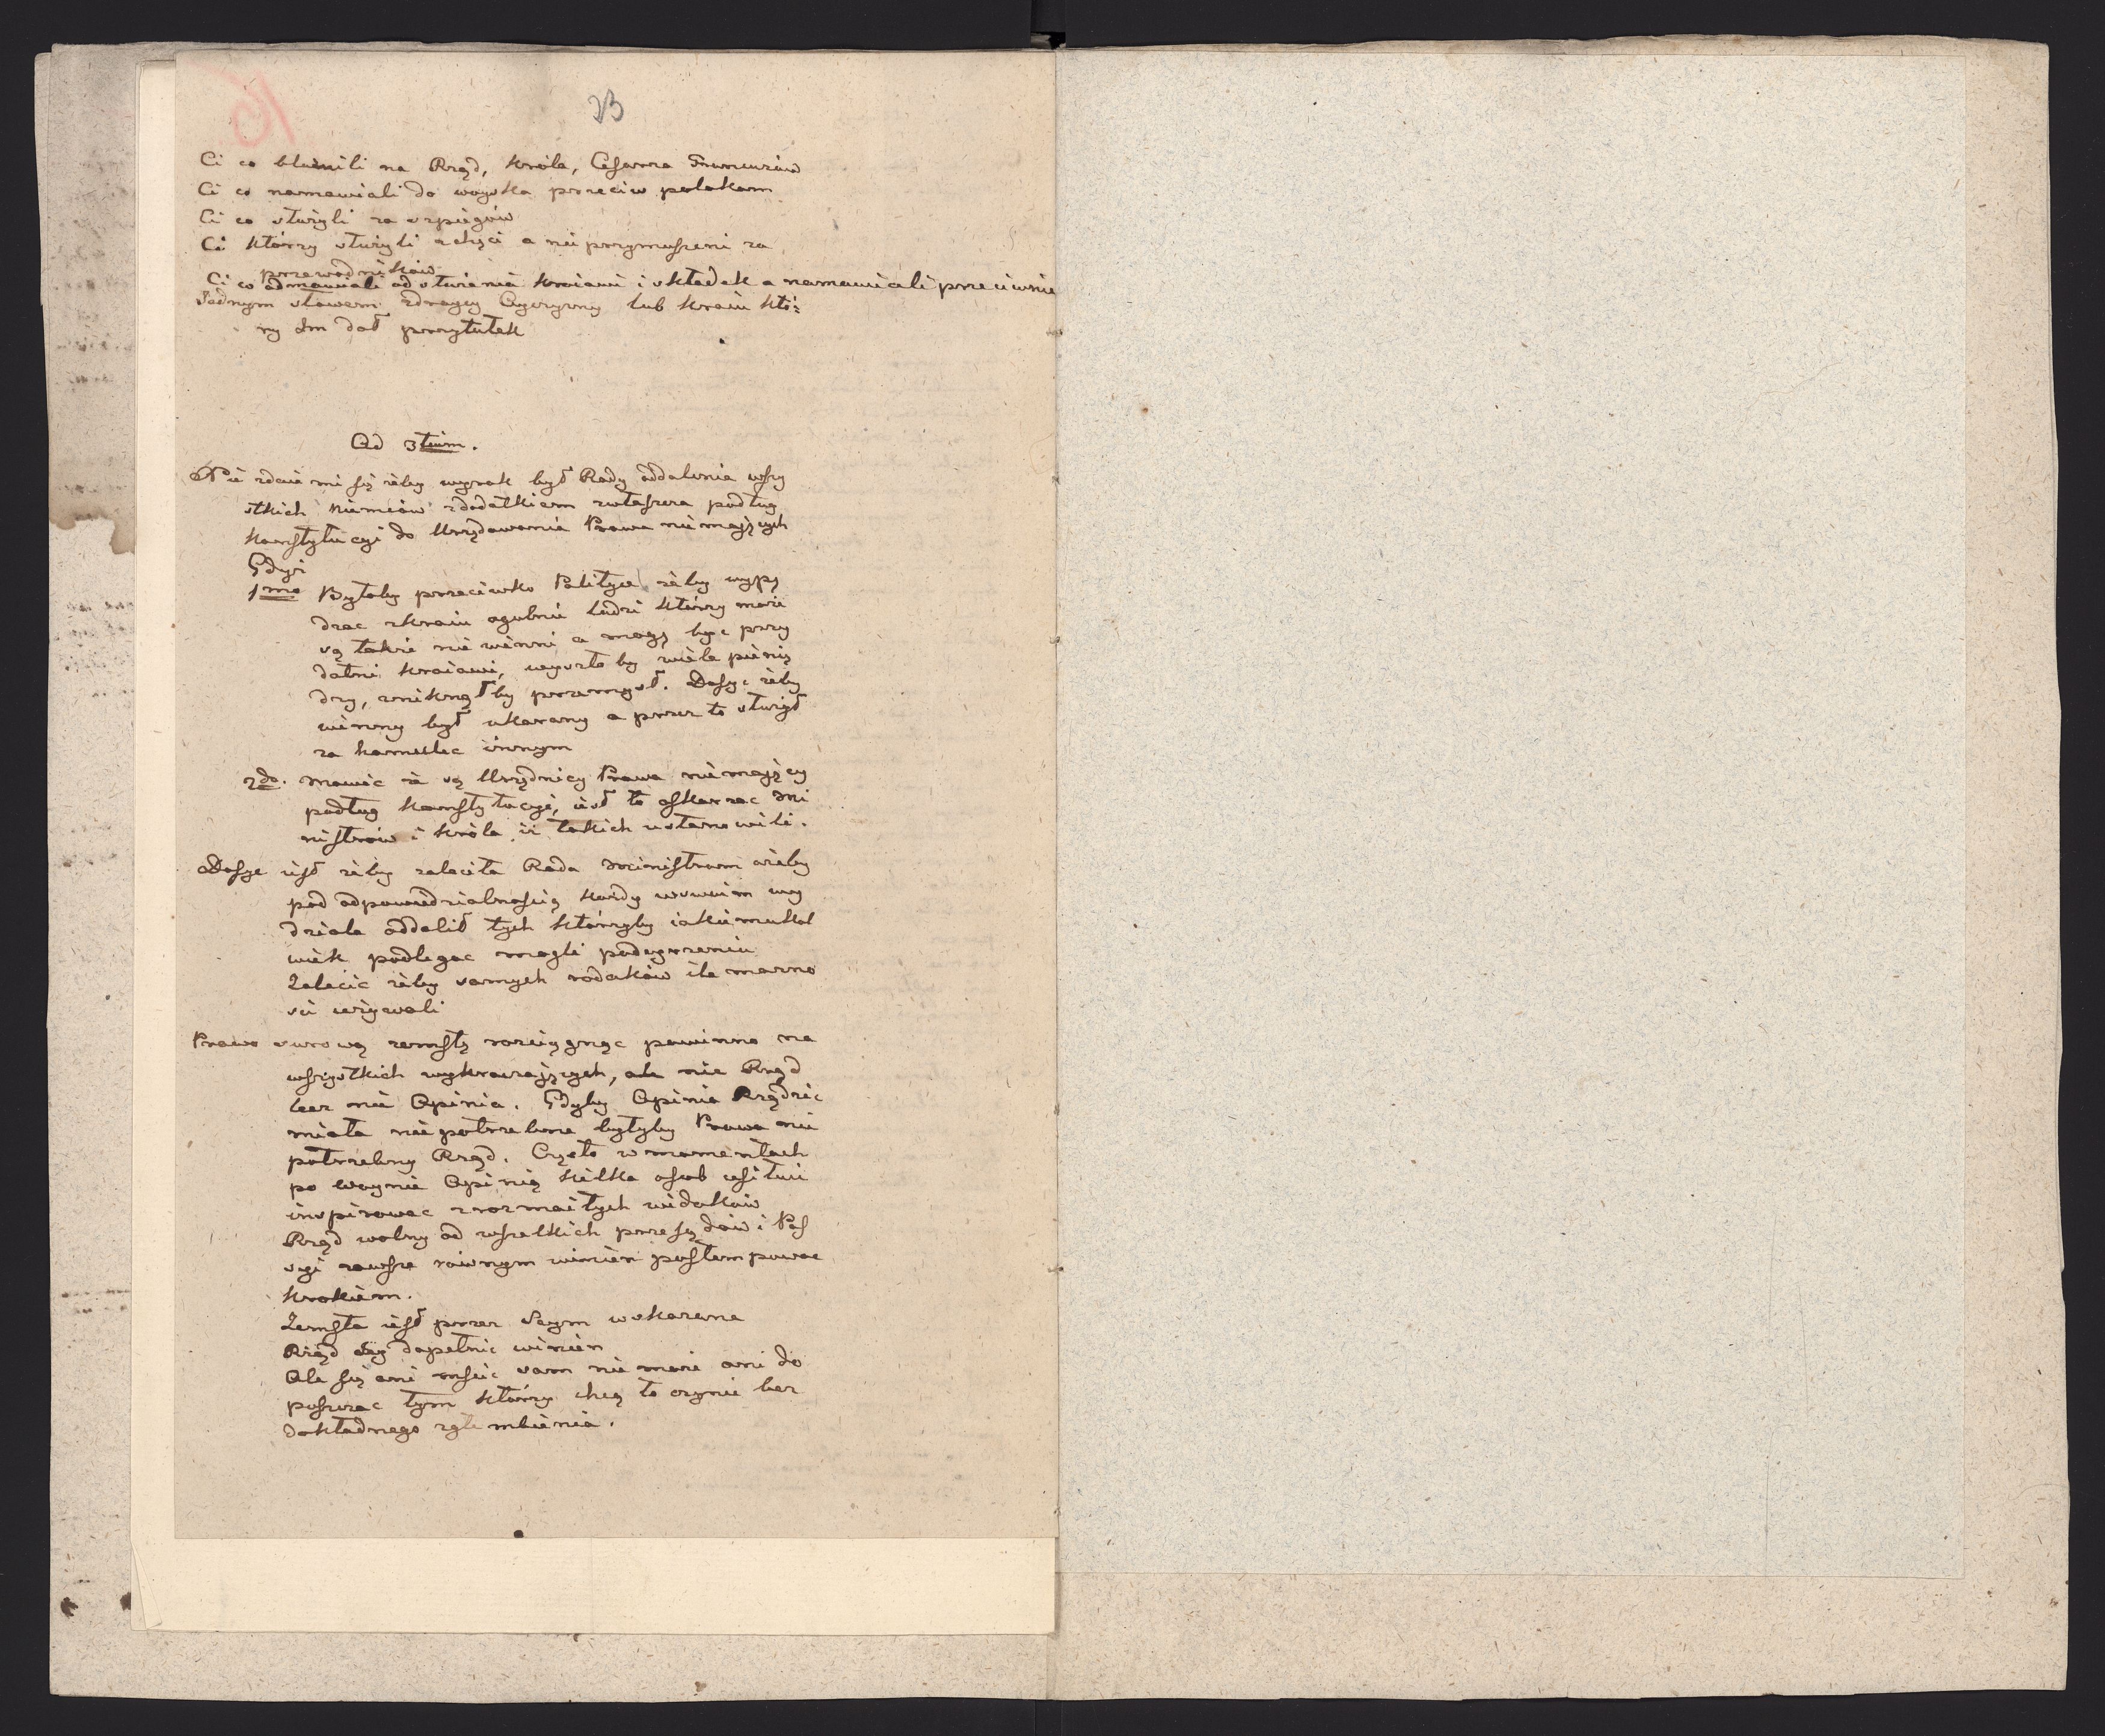 23
Ci co bluznili na Rząd, Króla, Cesarza Francuzów
Ci co namawiali do woyska przeciw polakom
Ci co służyli za szpiegów
Ci którzy służyli z chęci a nie przymuszeni za
przewodników
Ci co odmawiali od służenia kraiowi i składek a namawiali przeciwnie
Jednym słowem Zdraycy Oyczyzny lub kraiu któ:
ry Im dał przytułek
Ad 3tium.
Nie zdaie mi się żeby wyrok był Rady oddalenia wszy
stkich Niemców z dodatkiem zwłaszcza podług
Konstytucyi do Urzędowania Prawa nie mających
Gdyż
1mo Byłoby przeciwko Polityce żeby wypę
dzac z kraiu ogulnie ludzi którzy może
są także nie winni a mogą byc przy
datni kraiowi, wyszło by wiele pienię
dzy, zniknął by przemysł. Dosyc żeby
winny był ukarany a przez to służył
za hamulec innym
2do. Mowic że są Urzędnicy Prawa nie maiący
podług Konstytucyi, iest to oskarzac Mi
nistrów i Króla iż takich ustanowili.
Dosyc iest żeby zaleciła Rada Ministrom ażeby
pod odpowiedzialnością każdy w swoim wy
dziale oddalił tych którzyby iakiemukol
wiek podlegac mogli podeyrzeniu
Zalecic żeby samych rodaków ile mozno
sci używali
Prawo surową zemstę rozciągnąc powinno na
wszystkich wykraczaiących, ale nie Rząd
lecz nie Opinia. Gdyby Opinia Rządzic
miała nie potrzebne byłyby Prawa nie
potrzebny Rząd. Często w momentach
po woynie Opinią kilka osob usiłuie
inspirowac z rozmaitych widoków
Rząd wolny od wszelkich przesądów i Pas
syi zawsze równym winien postempowac
krokiem.
Zemsta iest przez Seym wskazana
Rząd Ią dopełnic winien
Ale się ani mścic sam nie może ani do
puszczac tym którzy chcą to czynic bez
dokładnego zgłembienia.